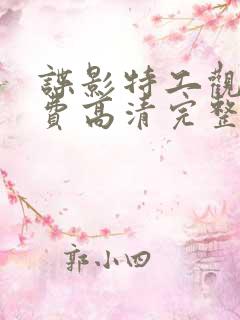 諜影特工觀
費高清完整
郭小四